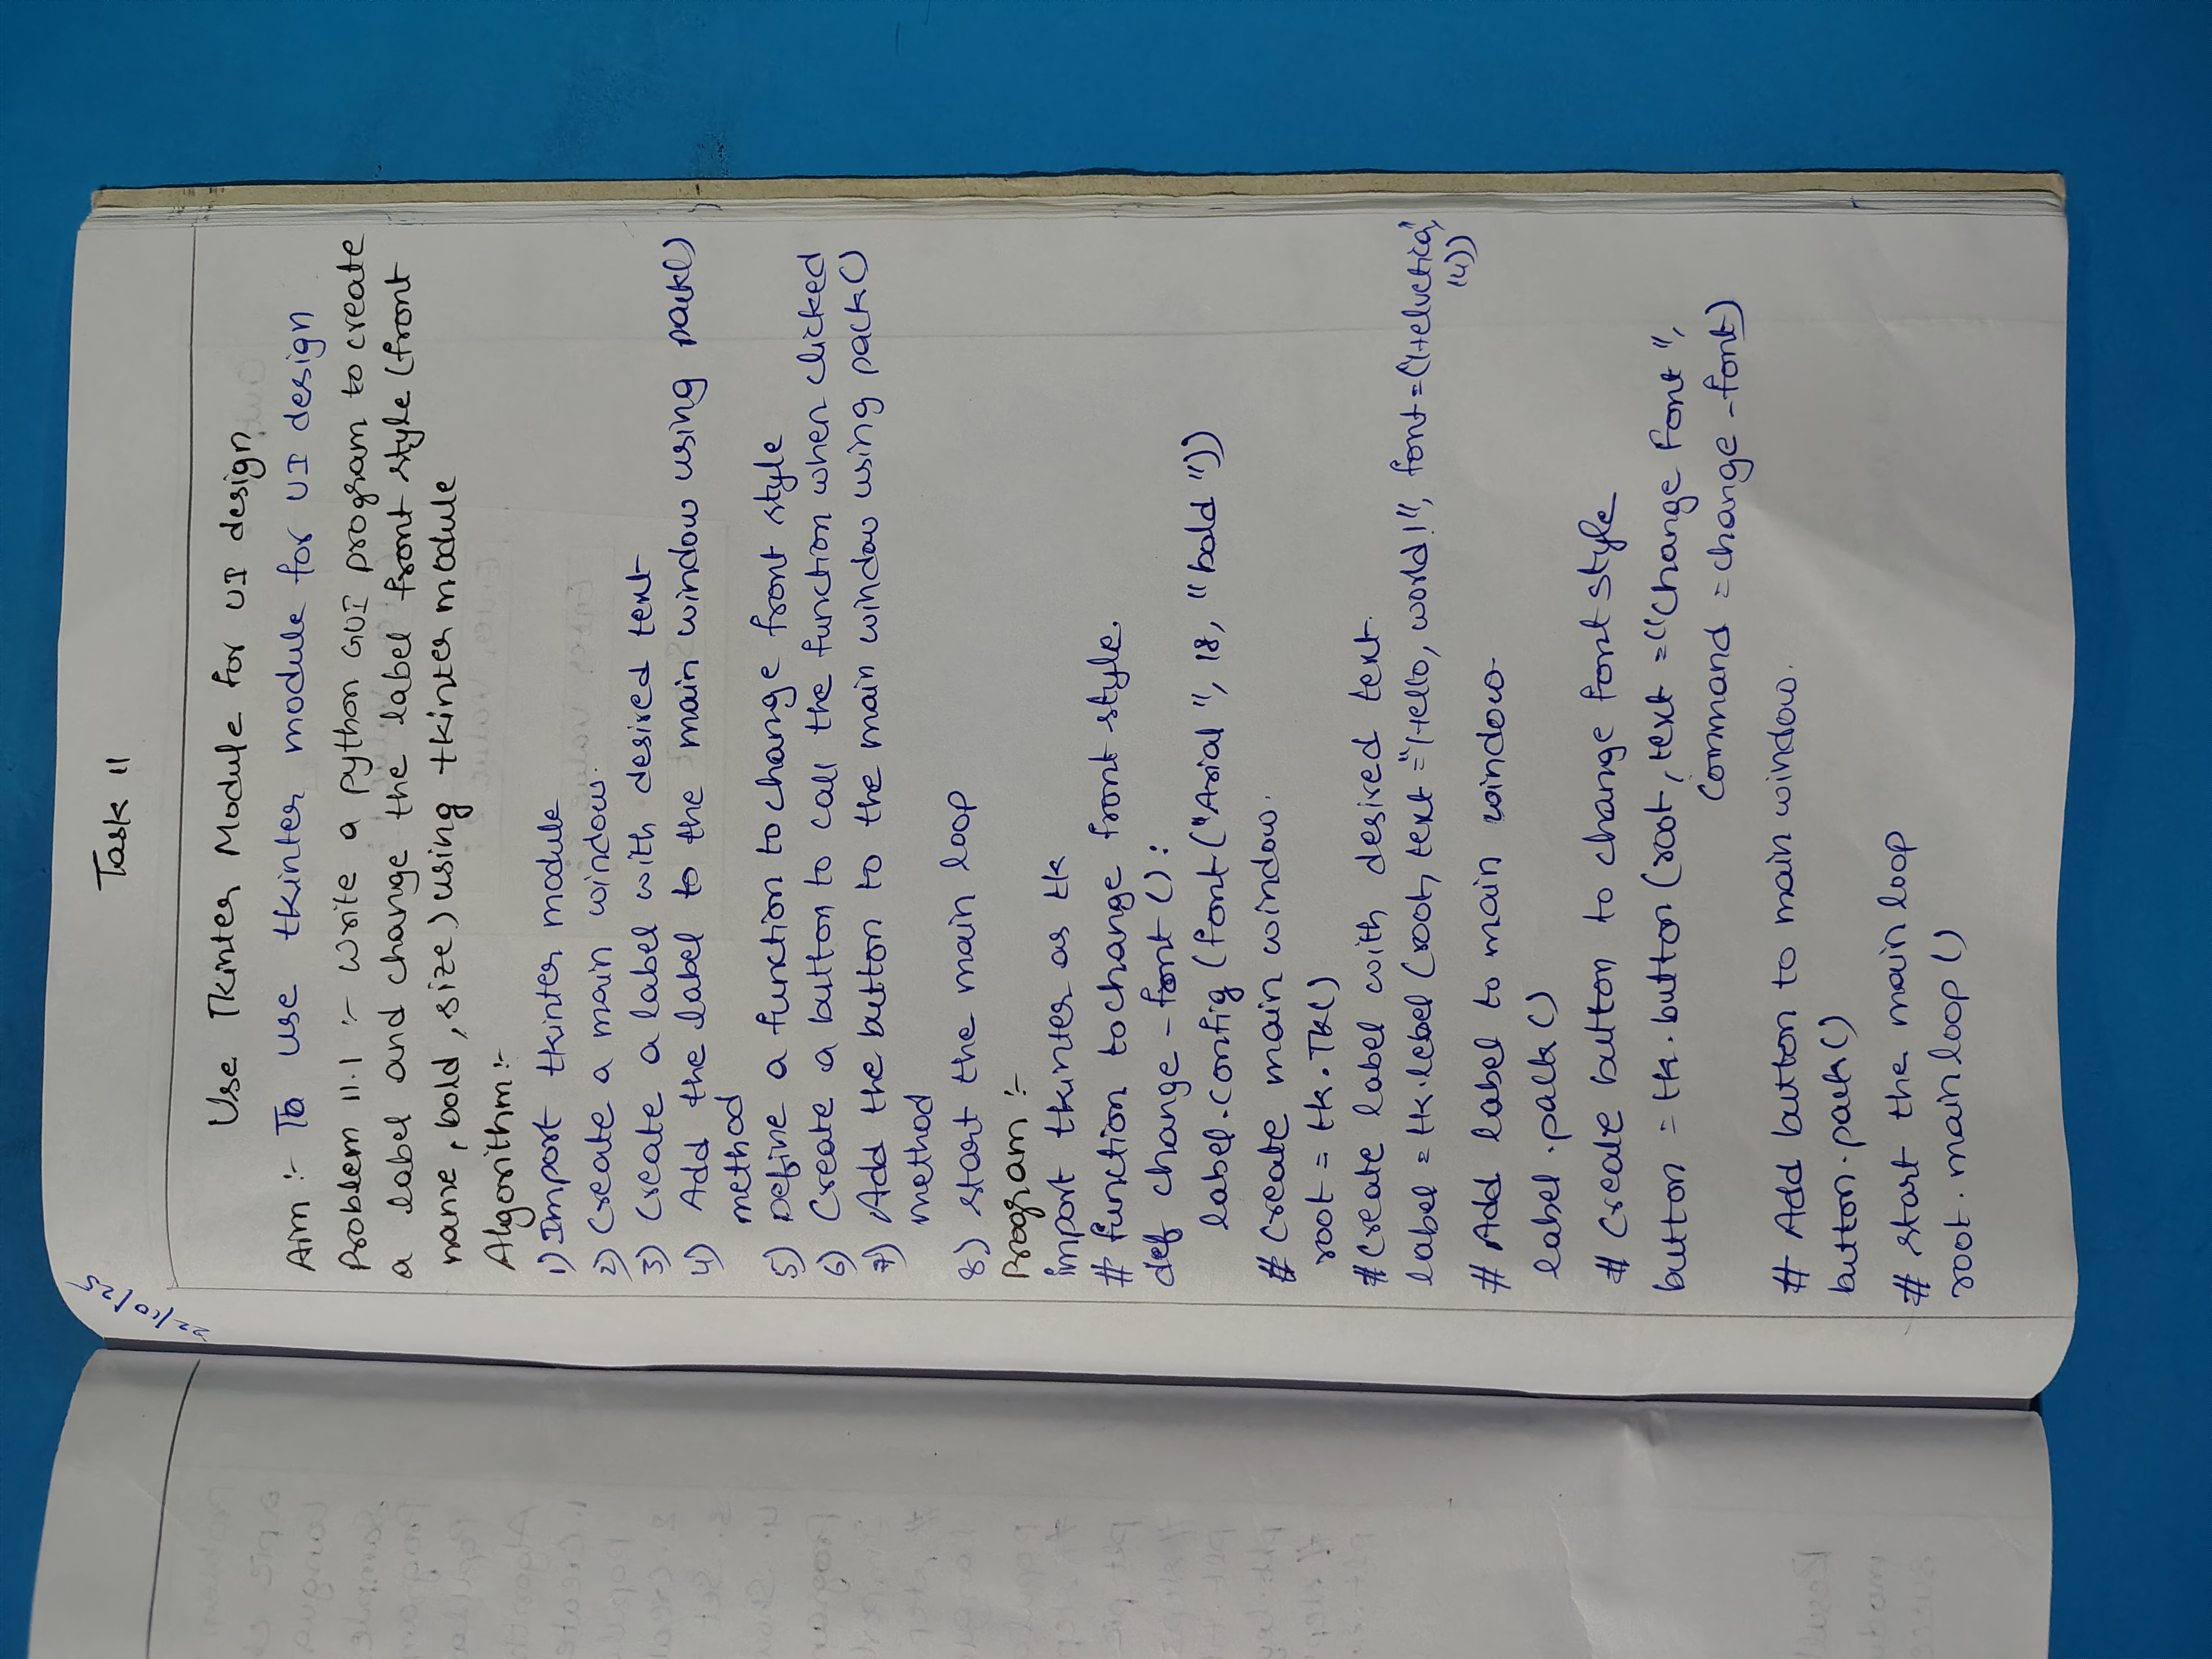 22/10/25
Task 11
Use Tkinter Module for UI design
Aim :- To use tkinter module for UI design
Problem 11.1 :- Write a python GUI program to create
a label and change the label front style (front
name, bold, size) using tkinter module
Algorithm :-
1) Import tkinter module
2) Create a main window.
3) Create a label with desired text
4) Add the label to the main window using pack()
method
5) Define a function to change front style
6) Create a button to call the function when clicked
7) Add the button to the main window using pack()
method
8) start the main loop
Program :-
import tkinter as tk
# function to change front style.
def change-font ():
label.config (font ("Arial", 18, "bold"))
# Create main window.
root = tk.Tk()
# Create label with desired text.
label = tk.lebel (root, text = "Hello, world!", font = ("Helvetica",
14))
# Add label to main window
label.pack ()
# Create button to change font style
button = tk.button (root, text = "Change Font",
Command = change-font)
# Add button to main window.
button.pack ()
# start the main loop
root.mainloop ()